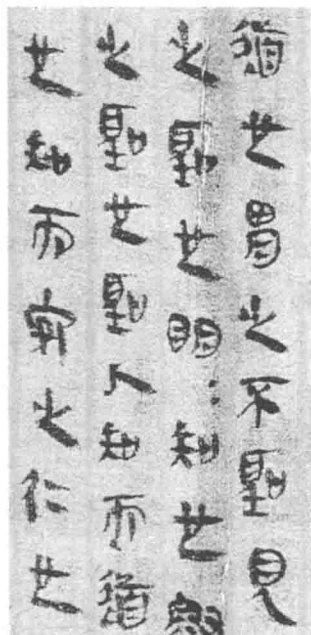 道也胃之不聖見
之聖也明=知也
之聖也聖人知而道
也知而安之仁也